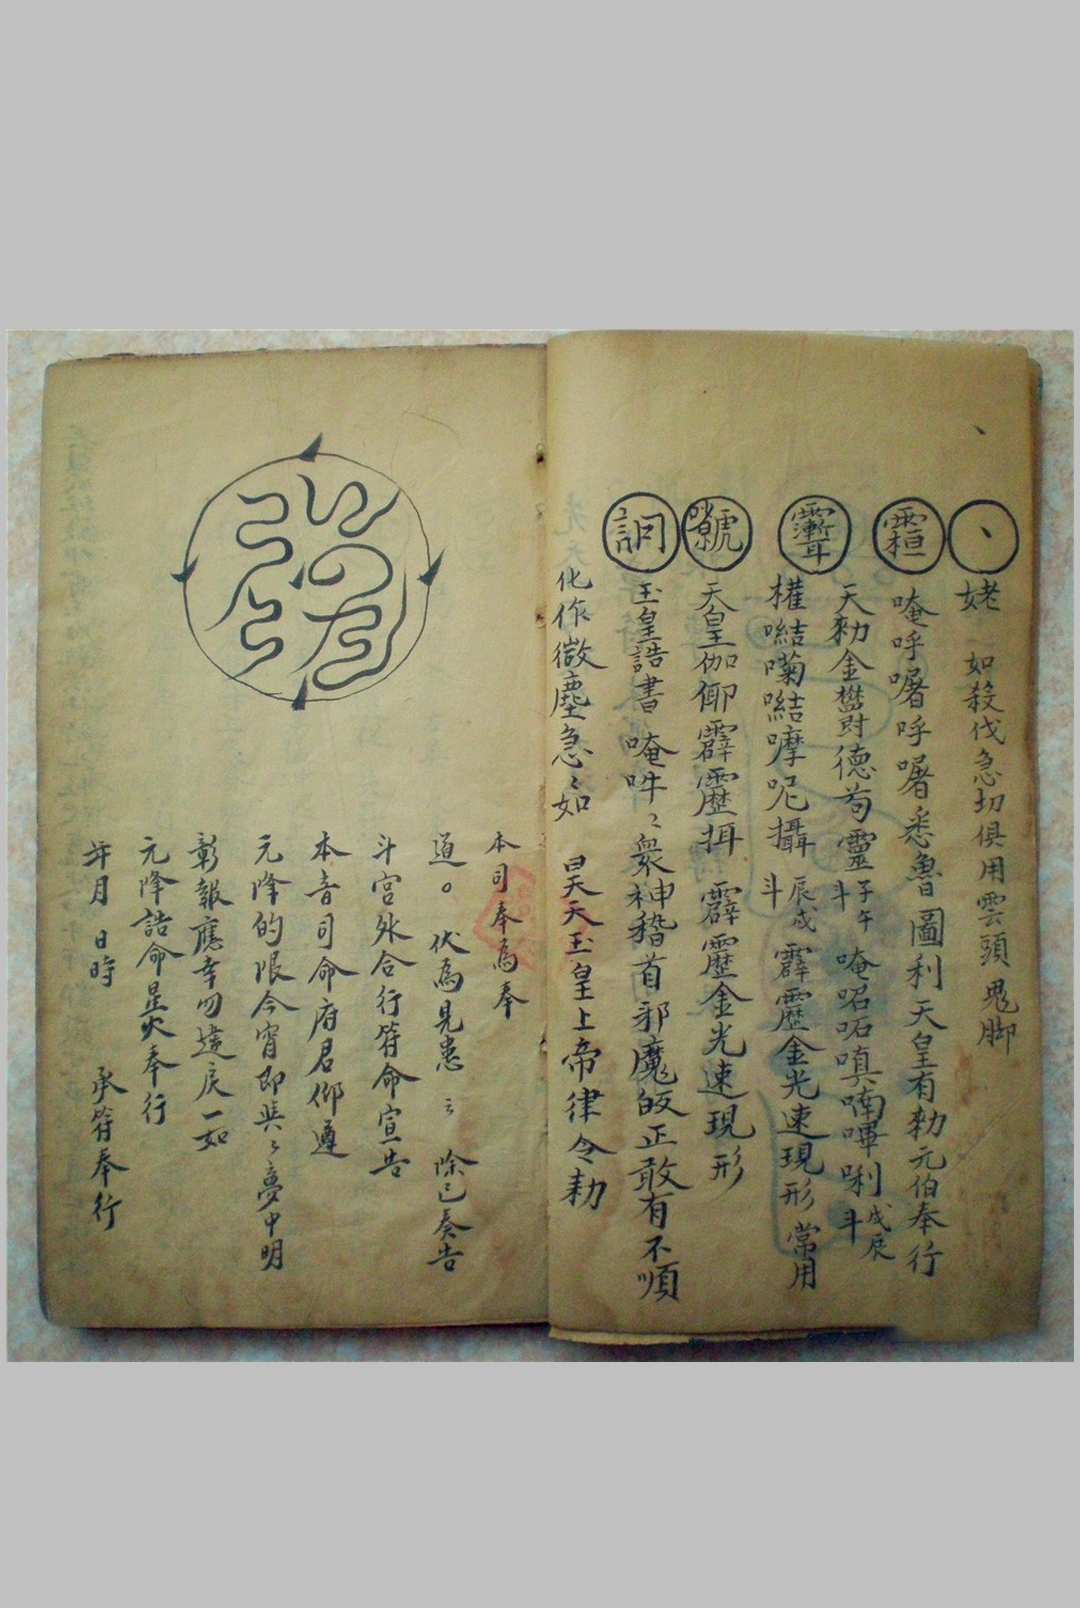 姥 如殺伐急切俱用雲頭鬼脚
唵呼喏呼喏悉魯圖利天皇有勑元伯奉行
天勑金 德苟靈 子午斗 唵 嗔喃嗶唎 戌辰斗
權 摩呢攝 辰戌斗 霹靂金光速現形 常用
天皇伽 霹靂 霹靂金光速現形
玉皇誥書唵吽〻衆神稽首邪魔皈正敢有不順
化作微塵急〻如 昊天玉皇上帝律令勑
本司奉為奉
道〇伏為見患 云 除已奏告
斗宮外合行符命宣告
本音司命府君仰遵
元降的限今宵即與〻夢中明
彰報應幸勿違戾一如
元降誥命星火奉行
年月 日時 承符奉行